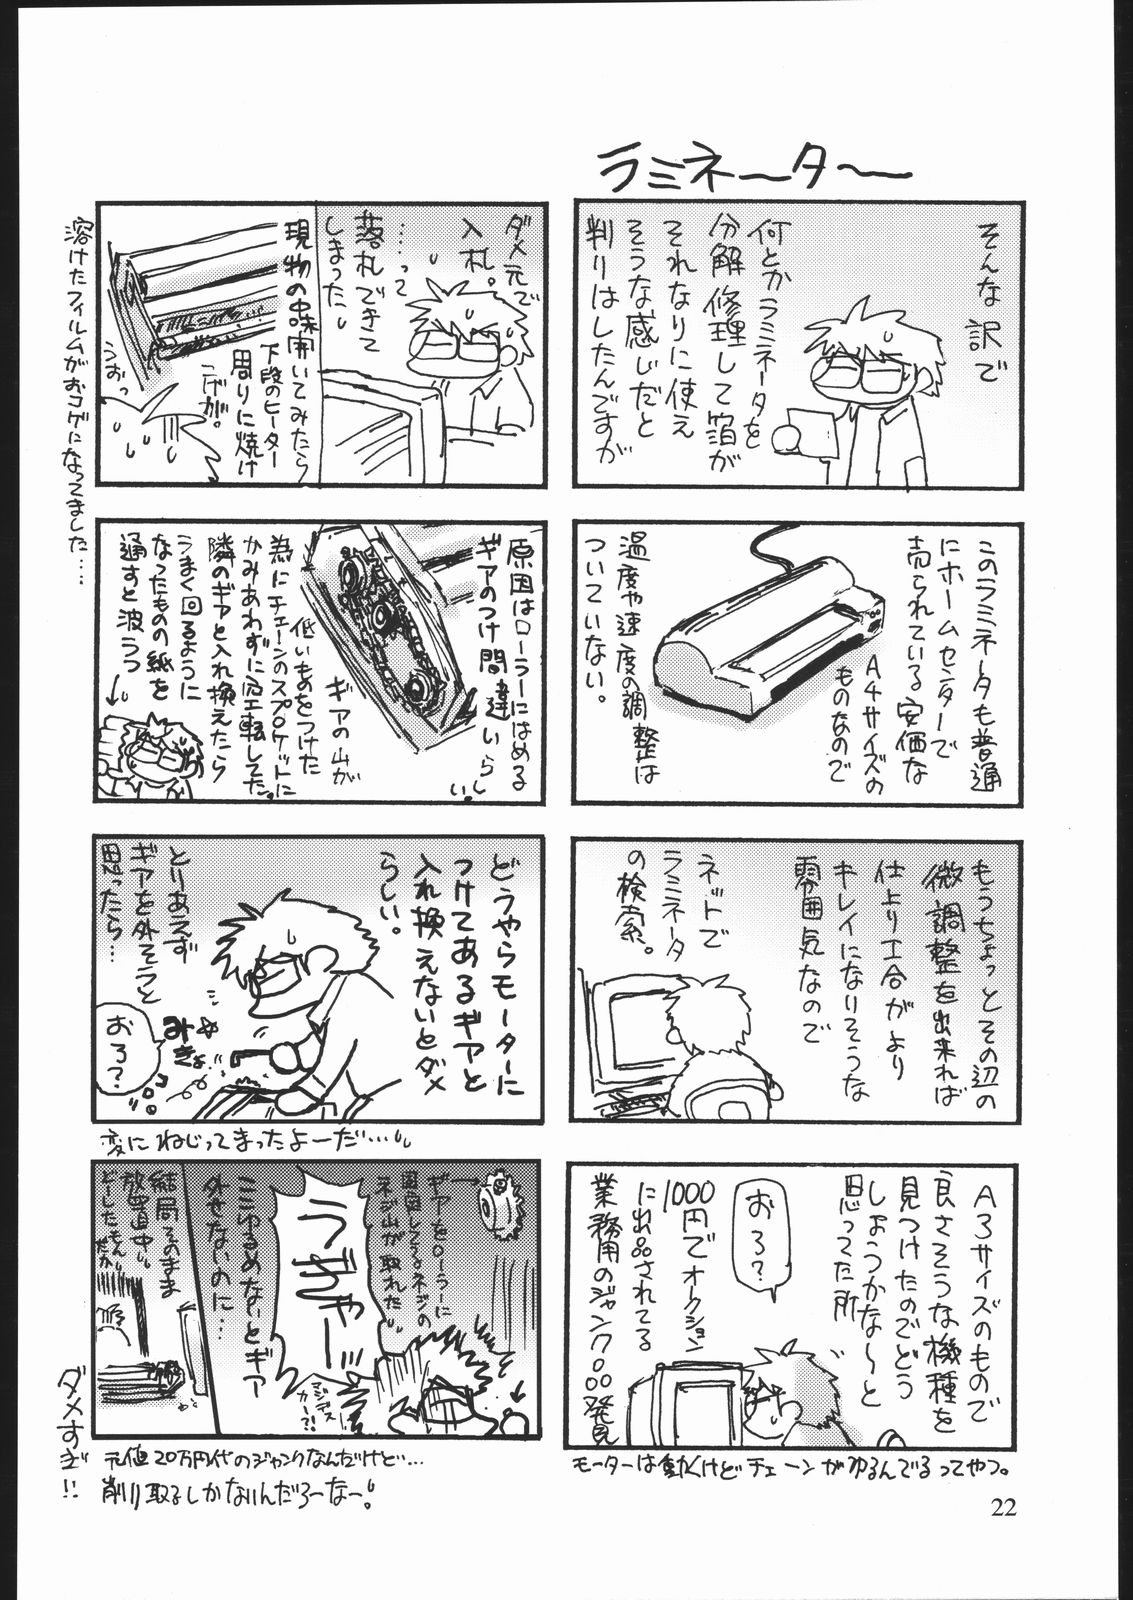 ラミネ〜タ〜
そんな訳で
何とかラミネータを
分解修理して箔が
それなりに使え
そうな感じだと
判りはしたんですが
このラミネータも普通
にホームセンターで
売られている安価な
A4サイズの
ものなので
温度や速度の調整は
ついていない。
もうちょっとその辺の
微調整を出来れば
仕上り工合がより
キレイになりそうな
雰囲気なので
ネットで
ラミネータ
の検索。
A3サイズのもので
良さそうな機種を
見つけたのでどう
しようかな〜と
思ってた所
おろ?
1000円でオークション
に出品されてる
業務用のジャンク。。。発見
モーターは動くけどチェーンがゆるんでるってやつ。
ダメ元で
入札。
……って
落札できて
しまった。
現物の中味開いてみたら
下段のヒーター
周りに焼け
こげが。
うおっ
溶けたフィルムがおコゲになってました……
原因はローラーにはめる
ギアのつけ間違いらしい。
ギアの山が
低いものをつけた
為にチェーンのスプロケットに
かみあわずに空転してた。
隣のギアと入れ換えたら
うまく回るように
なったものの紙を
通すと波うつ
どうやらモーターに
つけてあるギアと
入れ換えないとダメ
らしい。
とりあえず
ギアを外そうと
思ったら…
みきょ
おろ?
変にねじってまったよーだ…。
ギアをローラーに
固定してるネジの
ネジ山が取れた
うぎゃー
マジデスカー?!
ここゆるめないとギア
外せないのに…
結局そのまま
放置中。
どーしたもんだか
元値20万円代のジャンクなんだけど…
削り取るしかないんだろーなー。
ダメすぎ!!
22